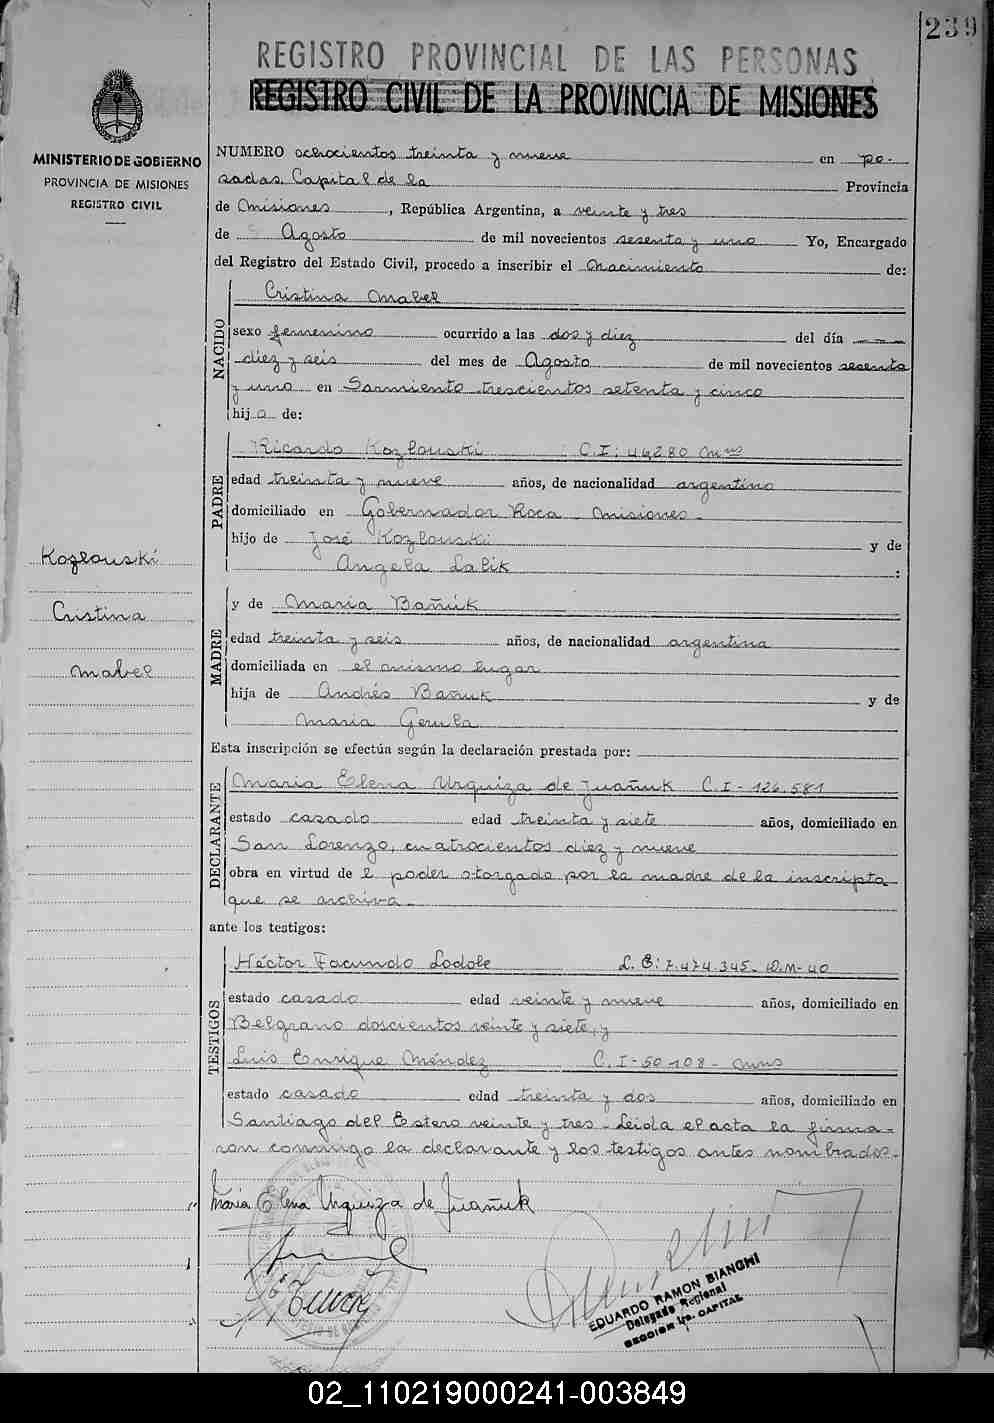 239
REGISTRO PROVINCIAL DE LAS PERSONAS
REGISTRO CIVIL DE LA PROVINCIA DE MISIONES
MINISTERIO DE GOBIERNO
PROVINCIA DE MISIONES
REGISTRO CIVIL
NUMERO ochocientos treinta y nueve en Po-
sadas. Capital de la Provincia
de Misiones, República Argentina, a veinte y tres
de Agosto de mil novecientos sesenta y uno Yo, Encargado
del Registro del Estado Civil, procedo a inscribir el Nacimiento de:
NACIDO
Cristina Mabel
sexo femenino ocurrido a las dos y diez del día
diez y seis del mes de Agosto de mil novecientos sesenta
y uno en Sarmiento trescientos setenta y cinco
hija de:
PADRE
Ricardo Kozlouski C.I: 46280 Mnes
edad treinta y nueve años, de nacionalidad argentino
domiciliado en Gobernador Roca - Misiones -
hijo de José Kozlouski y de
Angela Lalik :
Kozlouski
Cristina
Mabel
MADRE
y de Maria Bañuk
edad treinta y seis años, de nacionalidad argentina
domiciliada en el mismo lugar
hija de Andrés Bañuk y de
Maria Gerula
Esta inscripción se efectúa según la declaración prestada por:
DECLARANTE
Maria Elena Urquiza de Juañuk C.I - 126.581
estado casado edad treinta y siete años, domiciliado en
San Lorenzo, cuatrocientos diez y nueve
obra en virtud de l poder otorgado por la madre de la inscripta
que se archiva -
ante los testigos:
TESTIGOS
Héctor Facundo Lodole L. E: 7.474.345. D.M-40
estado casado edad veinte y nueve años, domiciliado en
Belgrano doscientos veinte y siete, y
Luis Enrique Méndez C.I-50108- Mnes
estado casado edad treinta y dos años, domiciliado en
Santiago del Estero veinte y tres - Leida el acta la firma-
ron conmigo la declarante y los testigos antes nombrados.
Maria Elena Urquiza de Juañuk
EDUARDO RAMON BIANCHI
Delegado Regional
SECCION 1ra. CAPITAL
02_110219000241-003849